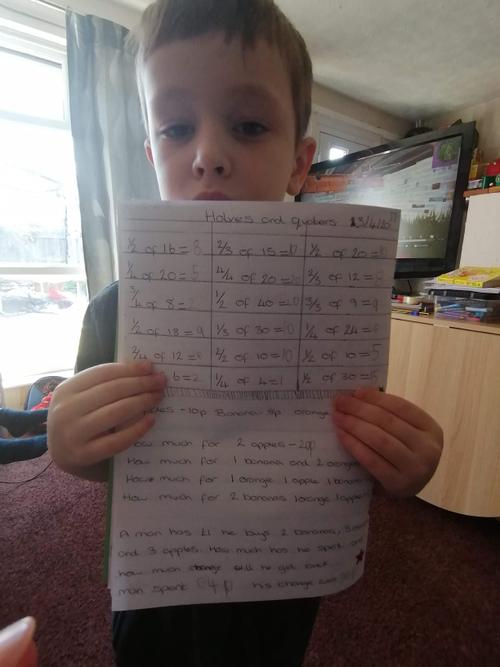 Halves and quaters 13/4/20
1/2 of 16 = 8 2/3 of 15 = 10 1/2 of 20 = 10
1/4 of 20 = 5 4/4 of 20 = 20 2/3 of 12 =
3/4 of 8 = 1/2 of 40 = 20 3/3 of 9 = 9
1/2 of 18 = 9 1/3 of 30 = 10 1/4 of 24 = 6
2/4 of 12 = 6 2/2 of 10 = 10 1/2 of 10 = 5
6 = 2 1/4 of 4 = 1 1/2 of 30 = 15
- 10p Banana 8p orange
How much for 2 apples - 20p
How much for 1 banana and 2 oranges
How much for 1 orange 1 apple 1 banana
How much for 2 bananas 1 orange 1 apple
A man has £1 he buys 2 bananas, 3
and 3 apples. How much has he spent and
how much will he get back
man spent 64p his change was